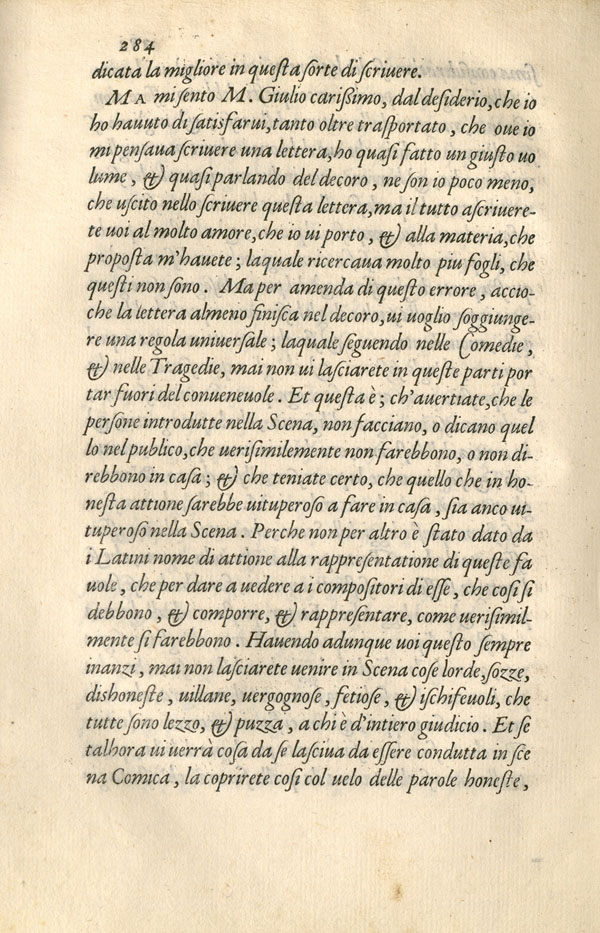 284
dicata la migliore in queſta ſorte di ſcriuere.
MA mi ſento M. Giulio cariſsimo, dal deſiderio, che io
ho hauuto di ſatisfarui, tanto oltre traſportato, che oue io
mi penſaua ſcriuere una lettera, ho quaſi fatto un giuſto uo
lume, & quaſi parlando del decoro, ne ſon io poco meno,
che uſcito nello ſcriuere queſta lettera, ma il tutto aſcriuere-
te uoi al molto amore, che io ui porto, & alla materia, che
propoſta m'hauete; laquale ricercaua molto piu fogli, che
queſti non ſono. Ma per amenda di queſto errore, accio-
che la lettera almeno finiſca nel decoro, ui uoglio ſoggiunge-
re una regola uniuerſale; laquale ſeguendo nelle Comedie,
& nelle Tragedie, mai non ui laſciarete in queſte parti por
tar fuori del conueneuole. Et queſta è; ch'auertiate, che le
perſone introdutte nella Scena, non facciano, o dicano quel
lo nel publico, che ueriſimilemente non farebbono, o non di-
rebbono in caſa; & che teniate certo, che quello che in ho-
neſta attione ſarebbe uituperoſo a fare in caſa, ſia anco ui-
tuperoſo nella Scena. Perche non per altro è ſtato dato da
i Latini nome di attione alla rappreſentatione di queſte fa
uole, che per dare a uedere a i compoſitori di eſſe, che coſi ſi
debbono, & comporre, & rappreſentare, come ueriſimil-
mente ſi farebbono. Hauendo adunque uoi queſto ſempre
inanzi, mai non laſciarete uenire in Scena coſe lorde, ſozze,
dishoneſte, uillane, uergognoſe, fetioſe, & iſchifeuoli, che
tutte ſono lezzo, & puzza, a chi è d'intiero giudicio. Et ſe
talhora ui uerrà coſa da ſe laſciua da eſſere condutta in ſce
na Comica, la coprirete coſi col uelo delle parole honeſte,